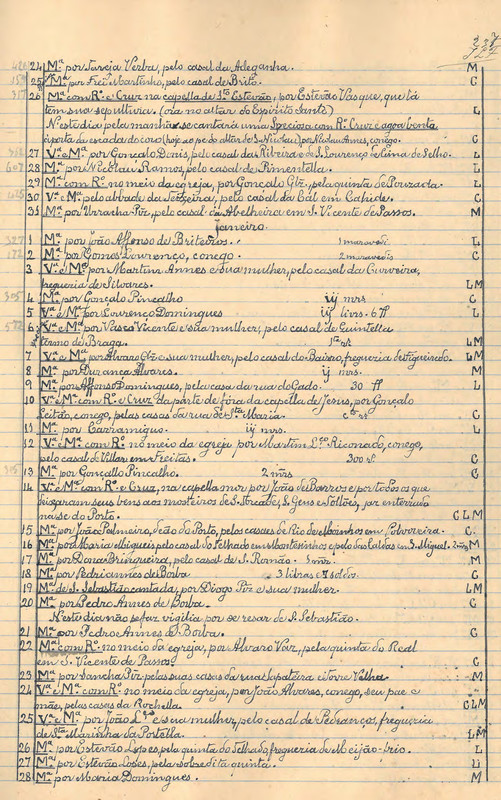 24 Mª. por Tareja Verba, pelo casal da Adeganha. M
25 Mª. por Frei Martinho, pelo casal de Brito. C
317 26 Mª com Rº e Cruz na capella de Sto Estevão, por Estevão Vasque, que tá
tem sua sepultura. (ora no altar do Espirito Santo)
N'este dia pela manhã se cantará uma Speciosa com Rº Cruz e agoa benta
á porta da escada do coro (hoje ao pé do altar de S. Nicolau) por Nicolau Annes, conego. C
27 V. e Mª por Gonçalo Denis, pelo casal das Ribeiras de S. Lourenço de Cima de Selho. L
28 Mª por Nicolau Ramos, pelo casal de Pimentella. L
29 Mª com Rº no meio da egreja, por Gonçalo Glz, pela quinta de Pouzada. L
30 Vª e Mª pelo abbade de Teixeira, pelo casal da Cal em Cahide. C
31 Mª por Urracha Piz, pelo casal da Abelheira em S. Vicente de Passos. M
Janeiro.
327 1 Mª por João Affonso de Briteiros. 1 maravedi. L
172 2 Mª por Gomes Lourenço, conego. 2 maravedis C
3 Vª e Mª por Martim Annes e sua mulher, pelo casal da Curveira,
freguezia de Silvares. LM
305 4 Mª por Gonçalo Pincalho iij mrs C
5 Vª e Mª por Lourenço Domingues iij livs. 6 ff L
572 6 Vª e Mª por Vasco Vicente e sua mulher, pelo casal de Quintella
termo de Braga. LM
7 Vª e Mª por Alvaro Glz e sua mulher, pelo casal do Bairro, freguezia de Figueiredo. LM
8 Mª por Durança Alvares. iij mrs. M
9 Mª por Affonso Domingues, pela casa da rua do Gado. 30 ff L
10 Vª e Mª com Rº e Cruz da parte de fóra da capella de Jesus, por Gonçalo
Leitão, conego, pelas casas da rua de Sta Maria. C
11 Mª por Carramiguo. iij mrs. L
12 Vª e Mª com Rº no meio da egreja por Martim Lço Riconado, conego,
pelo casal de Villar em Freitas. 300 C
305 13 Mª por Gonçallo Pincalho. 2 mrs C
14 Vª e Mª com Rº e Cruz, na capella mor por João de Barros e por todos os que
deixaram seus bens aos mosteiros de S. Torcade, S. Gens e Tollões, jaz enterrado
na sé do Porto. CLM
15 Mª por João Palmeiro, deão do Porto, pelos casaes de Rio de Moinhos em Polvoreira. C
16 Mª por Maria Migueis pelo casal do Telhado em Montezinhos e pelo das Caldas em S. Miguel. 2 mrs M
17 Mª por Dona Bringueira, pelo casal de S. Romão. M
18 Mª por Pedr'annes de Borba 3 libras e soldos. C
19 Mª de S. Sebastião cantada, por Diogo Piz e sua mulher. LM
20 Mª por Pedro Annes de Borba. C
N'este dia não se faz vigilia por se resar de S. Sebastião.
21 Mª por Pedro Annes de Borba. C
22 Mª com Rº no meio da egreja, por Alvaro Vaz, pela quinta do Real
em S. Vicente de Passos. C
23 Mª por Sancha Piz pelas suas casas da rua Sapateira e Torre Velha M
24 Vª e Mª com Rº no meio da egreja, por João Alvares, conego, seu pae e
mães, pelas casas da Rochella. CLM
25 Vª e Mª por João Lço e sua mulher, pelo casal de Pedranços, freguezia
de Sta Marinha da Portella. LM
26 Mª por Estevão Lopes pela quinta do Telhado, freguezia de Meijão-frio. L
27 Mª por Estevão Lopes, pela sobredita quinta. L
28 Mª por Maria Domingues. M